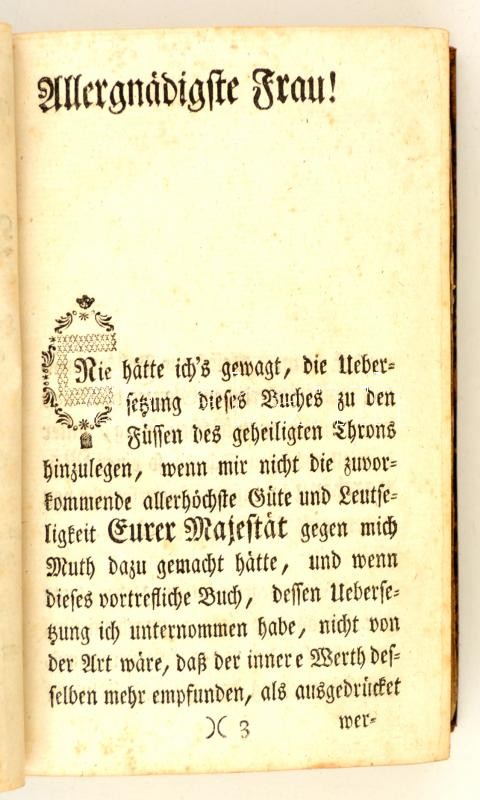 Allergnädigste Frau!
Nie hätte ich's gewagt, die Ueber=
setzung dieses Buches zu den
Füssen des geheiligten Throns
hinzulegen, wenn mir nicht die zuvor=
kommende allerhöchste Güte und Leutse=
ligkeit Eurer Majestät gegen mich
Muth dazu gemacht hätte, und wenn
dieses vortrefliche Buch, dessen Ueberse=
tzung ich unternommen habe, nicht von
der Art wäre, daß der innere Werth des=
selben mehr empfunden, als ausgedrücket
)( 3
wer=